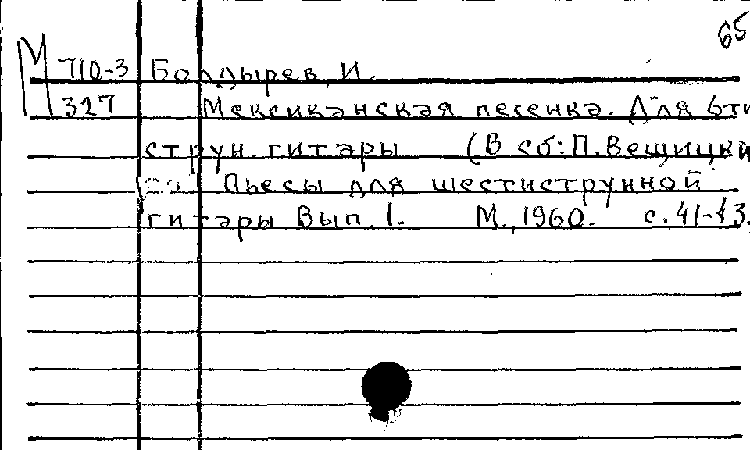 65
М 710-3 Болдырев, И.
327 Мексиканская песенка. Для 6ти
струн. гитары (В сб: П. Вещицкий
Пьесы для шестиструнной
гитары Вып. 1. М., 1960. с. 41-43.